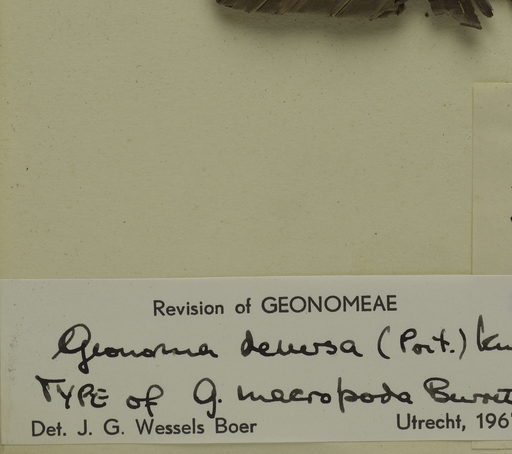 Revision of GEONOMEAE
Geonoma deversa (Poit.)
TYPE of G. macropoda Burret
Det. J. G. Wessels Boer Utrecht, 196